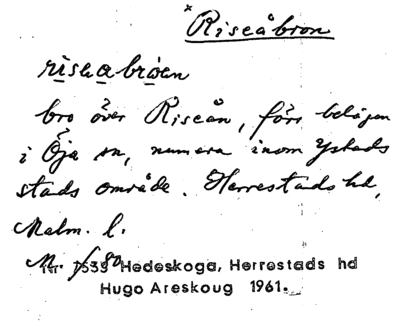 × Riseåbron
riseabroen
bro över Riseån, förr belägen
i Öja sn, numera inom Ystads
stads område. Herrestads hd,
Malm. l.
M.
Nr. 7539 Hedeskoga, Herrestads hd
Hugo Areskoug 1961.